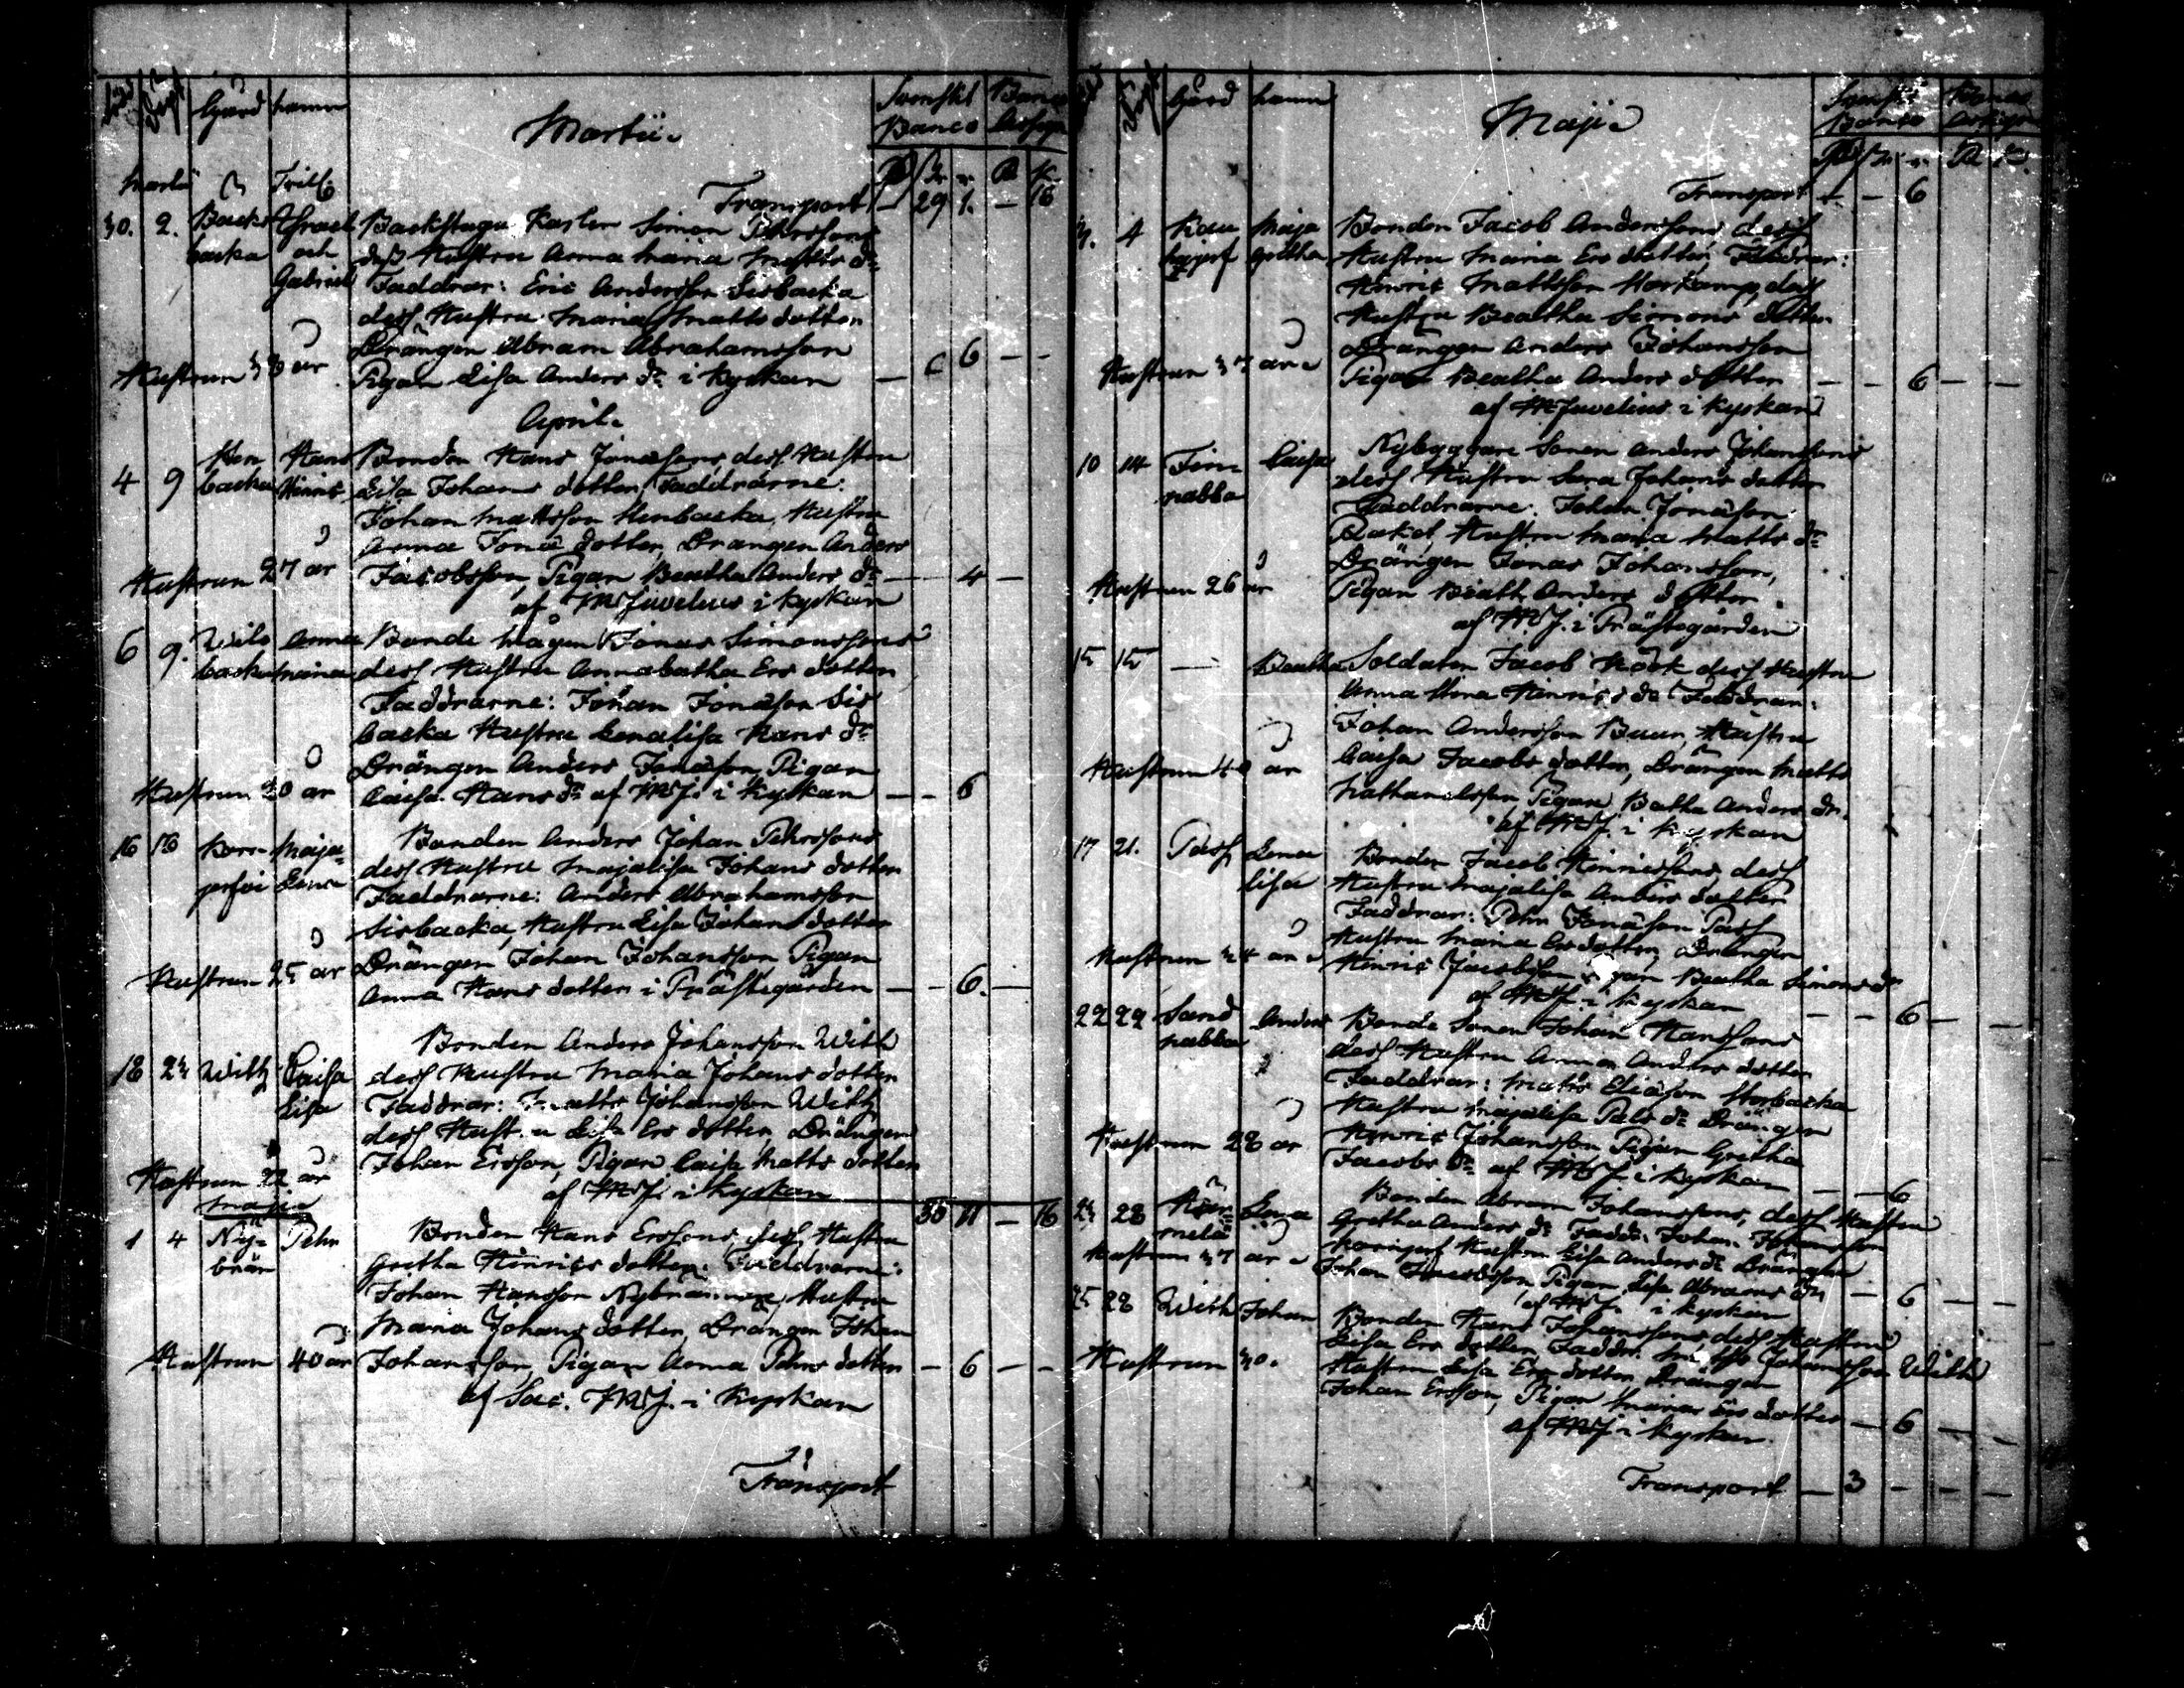 Gård namn
Svenskt Banco
Martii
Martii Trill
Transport – 29 1. – 16
30. 2. Backs backa Israel och Gabriel
Backstugu Karlen Simon Pehrssons
dess Hustru Anna Maria Matts dr
Faddrar: Eric Andersson Sisbacka
dess Hustru Maria Matts dotter
Drängen Abram Abrahamsson
Hustrun 38 år Pigan Lisa Anders dr i Kyrkan – 6 – –
April.
4 9 Hen backa Hans Hinric
Bonden Hans Jonassons dess Hustru
Lisa Johans dotter, Faddrarne:
Johan Mattsson Henbacka, Hustru
Anna Jonæ dotter, Drängen Anders
Hustrun 27 år Jacobsson, Pigan Beatha Anders dr – 4 –
af MJuvelius i Kyrkan
6 9. Wils backa Anna Maria
Bonde Mågen Jonas Simonssons
dess Hustru Annabeatha Ers dotter
Faddrarne: Johan Jonasson Sis
backa Hustru Lenalisa Hans dr
Drängen Anders Jonasson, Pigan
Hustrun 20 år Caisa Hans dr af MJ. i Kyrkan – – 6
16 16 Maja Lena
Bonden Anders Johan Pehrssons
dess Hustru Majalisa Johans dotter
Faddrarne: Anders Abrahamsson
Sisbacka, Hustru Lisa Johans dotter
Drängen Johan Johansson Pigan
Hustrun 25 år Anna Hans dotter i Prästegården – – 6. –
Bonden Anders Johansson With
18 23 With Caisa Lisa
dess Hustru Maria Johans dotter
Faddrar: Matts Johansson With
dess Hustru Lisa Ers dotter, Drängen
Johan Ersson, Pigan Caisa Matts dotter
Hustrun 22 år
af MJ. i Kyrkan
Maji
– 16
1 4 Ny- brän Pehr
Bonden Hans Erssons dess Hustru
Gretha Hinrics dotter. Faddrarne:
Johan Hansson Nybrännare, Hustru
Maria Johans dotter, Drängen Johan
Hustrun 40 år Johansson, Pigan Anna Pehrs dotter – 6 – –
af Sac. MJ. i Kyrkan
Transport
Gård namn
Maji
Transport – – 6
3. 4 Maja gretha
Bonden Jacob Anderssons dess
Hustru Maria Ers dotter, Faddrar:
Hinric Mattsson Storkamp, dess
Hustru Beatha Simons dotter
Drängen Anders Johansson
Hustrun 37 år Pigan Beatha Anders dotter – – 6 – –
af MJuvelius i Kyrkan
10 14 Finnabba Caisa
Nybyggare Sonen Anders Johanssons
dess Hustru Sara Johans dotter
Faddrarne: Johan Jonasson
Hustru Maria Matts dr
Drängen Jonas Johansson,
Hustrun 26 år Pigan Beath Anders dotter
af MJ. i Prästegården
15 15 – Beatha
Soldaten Jacob Rask dess Hustru
Anna Stina Hinrics dr Faddrar:
Johan Andersson Hustru
Hustrun 40 år Caisa Jacobs dotter, Drängen Matts
Nathanelsson, Pigan Beatha Anders dr.
af MJ i Kyrkan
17 21. Pass Lena Lisa
Bonden Jacob Hinricssons dess
Hustru Majalisa Anders dotter
Faddrar: Pehr Jonasson Pass
Hustru Maria Ersdotter, Drängen
Hustrun 34 år Hinric Jacobsson Pigan Beatha Simons dr
af MJ i Kyrkan – – 6 – –
22 22 Sandnabba Anders
Bonde Sonen Johan Hanssons
dess Hustru Anna Anders dotter
Faddrar: Matts Eliasson Storbacka
Hustru Majalisa Pehrs dr Drängen
Hustrun 28 år Hinric Johansson, Pigan Gretha
Jacobs dr af MJ i Kyrkan – – 6
23 28 Lena
Bonden Abram Johanssons, dess Hustru
Gretha Anders dr Faddr. Johan Johansson
Hustrun 37 år Hustru Lisa Anders dr Drängen
Johan Jacobsson, Pigan Lisa Abrams dr – 6 – –
af MJ. i Kyrkan
25 28 With Johan
Bonden Hans Johanssons dess Hustru
Lisa Ers dotter, Faddr. Matts Johansson With
Hustrun 30. Hustru Lisa Ers dotter Drängen
Johan Ersson, Pigan Maria Ers dotter – 6 – –
af MJ i Kyrkan
Transport – 3 – – –